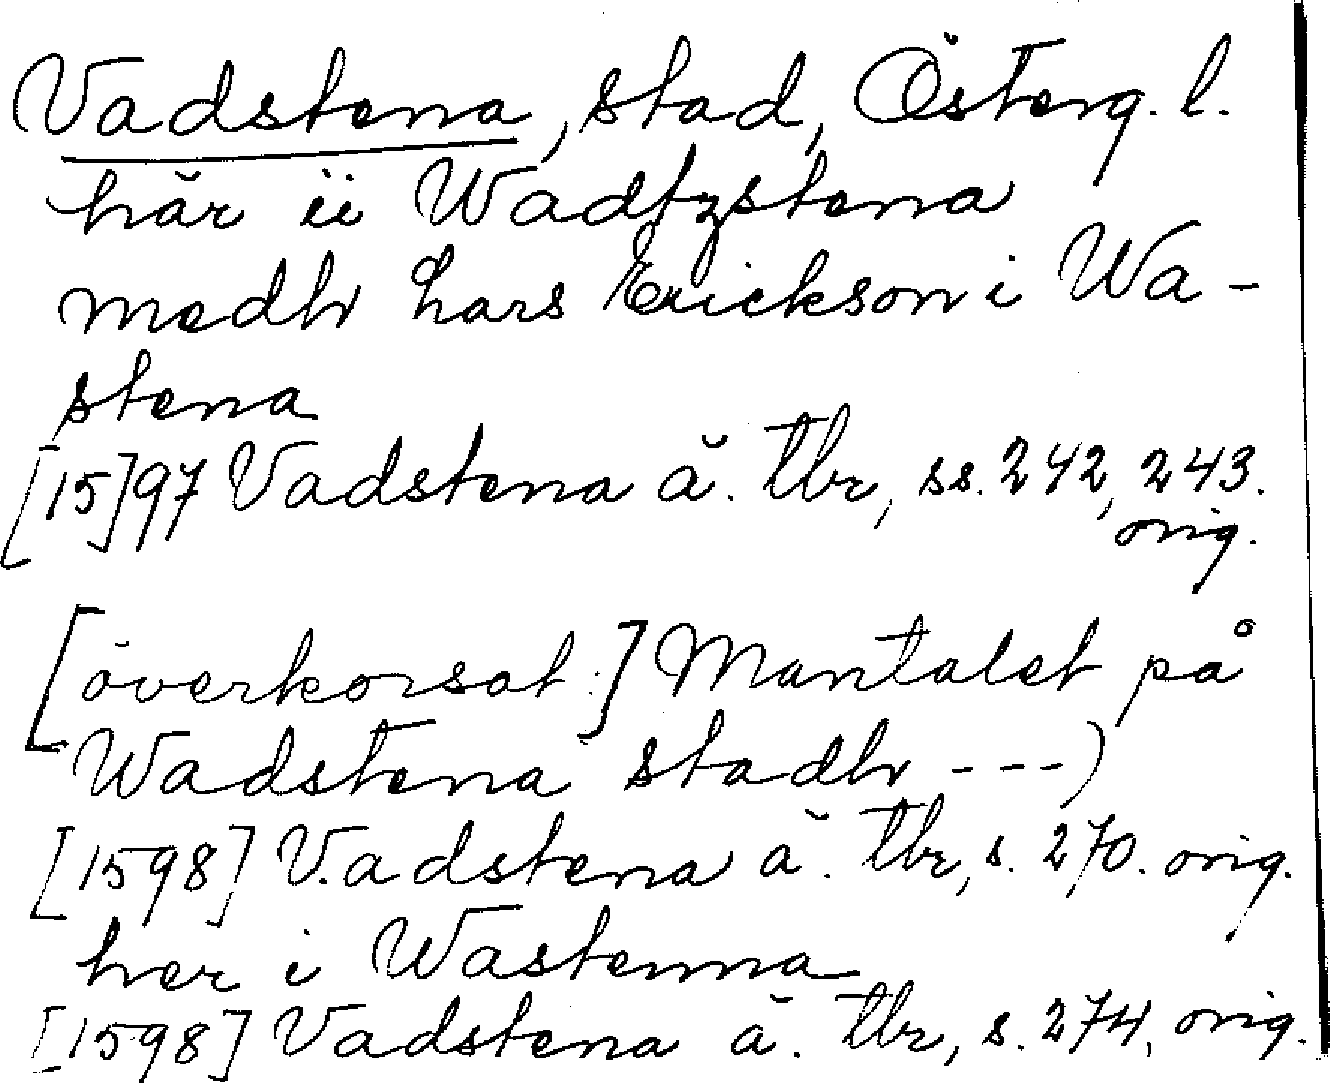 Vadstena, stad, Österg. l.
här ii Wadtzstena
medh Lars Erickson i Wa-
stena
[15]97 Vadstena ä. tbr, ss. 242, 243.
orig.
[överkorsat:] Mantalet på
Wadstena stadh ---)
[1598] Vadstena ä. tbr, s. 270. orig.
her i Wastenna
[1598] Vadstena ä. tbr, s. 274, orig.